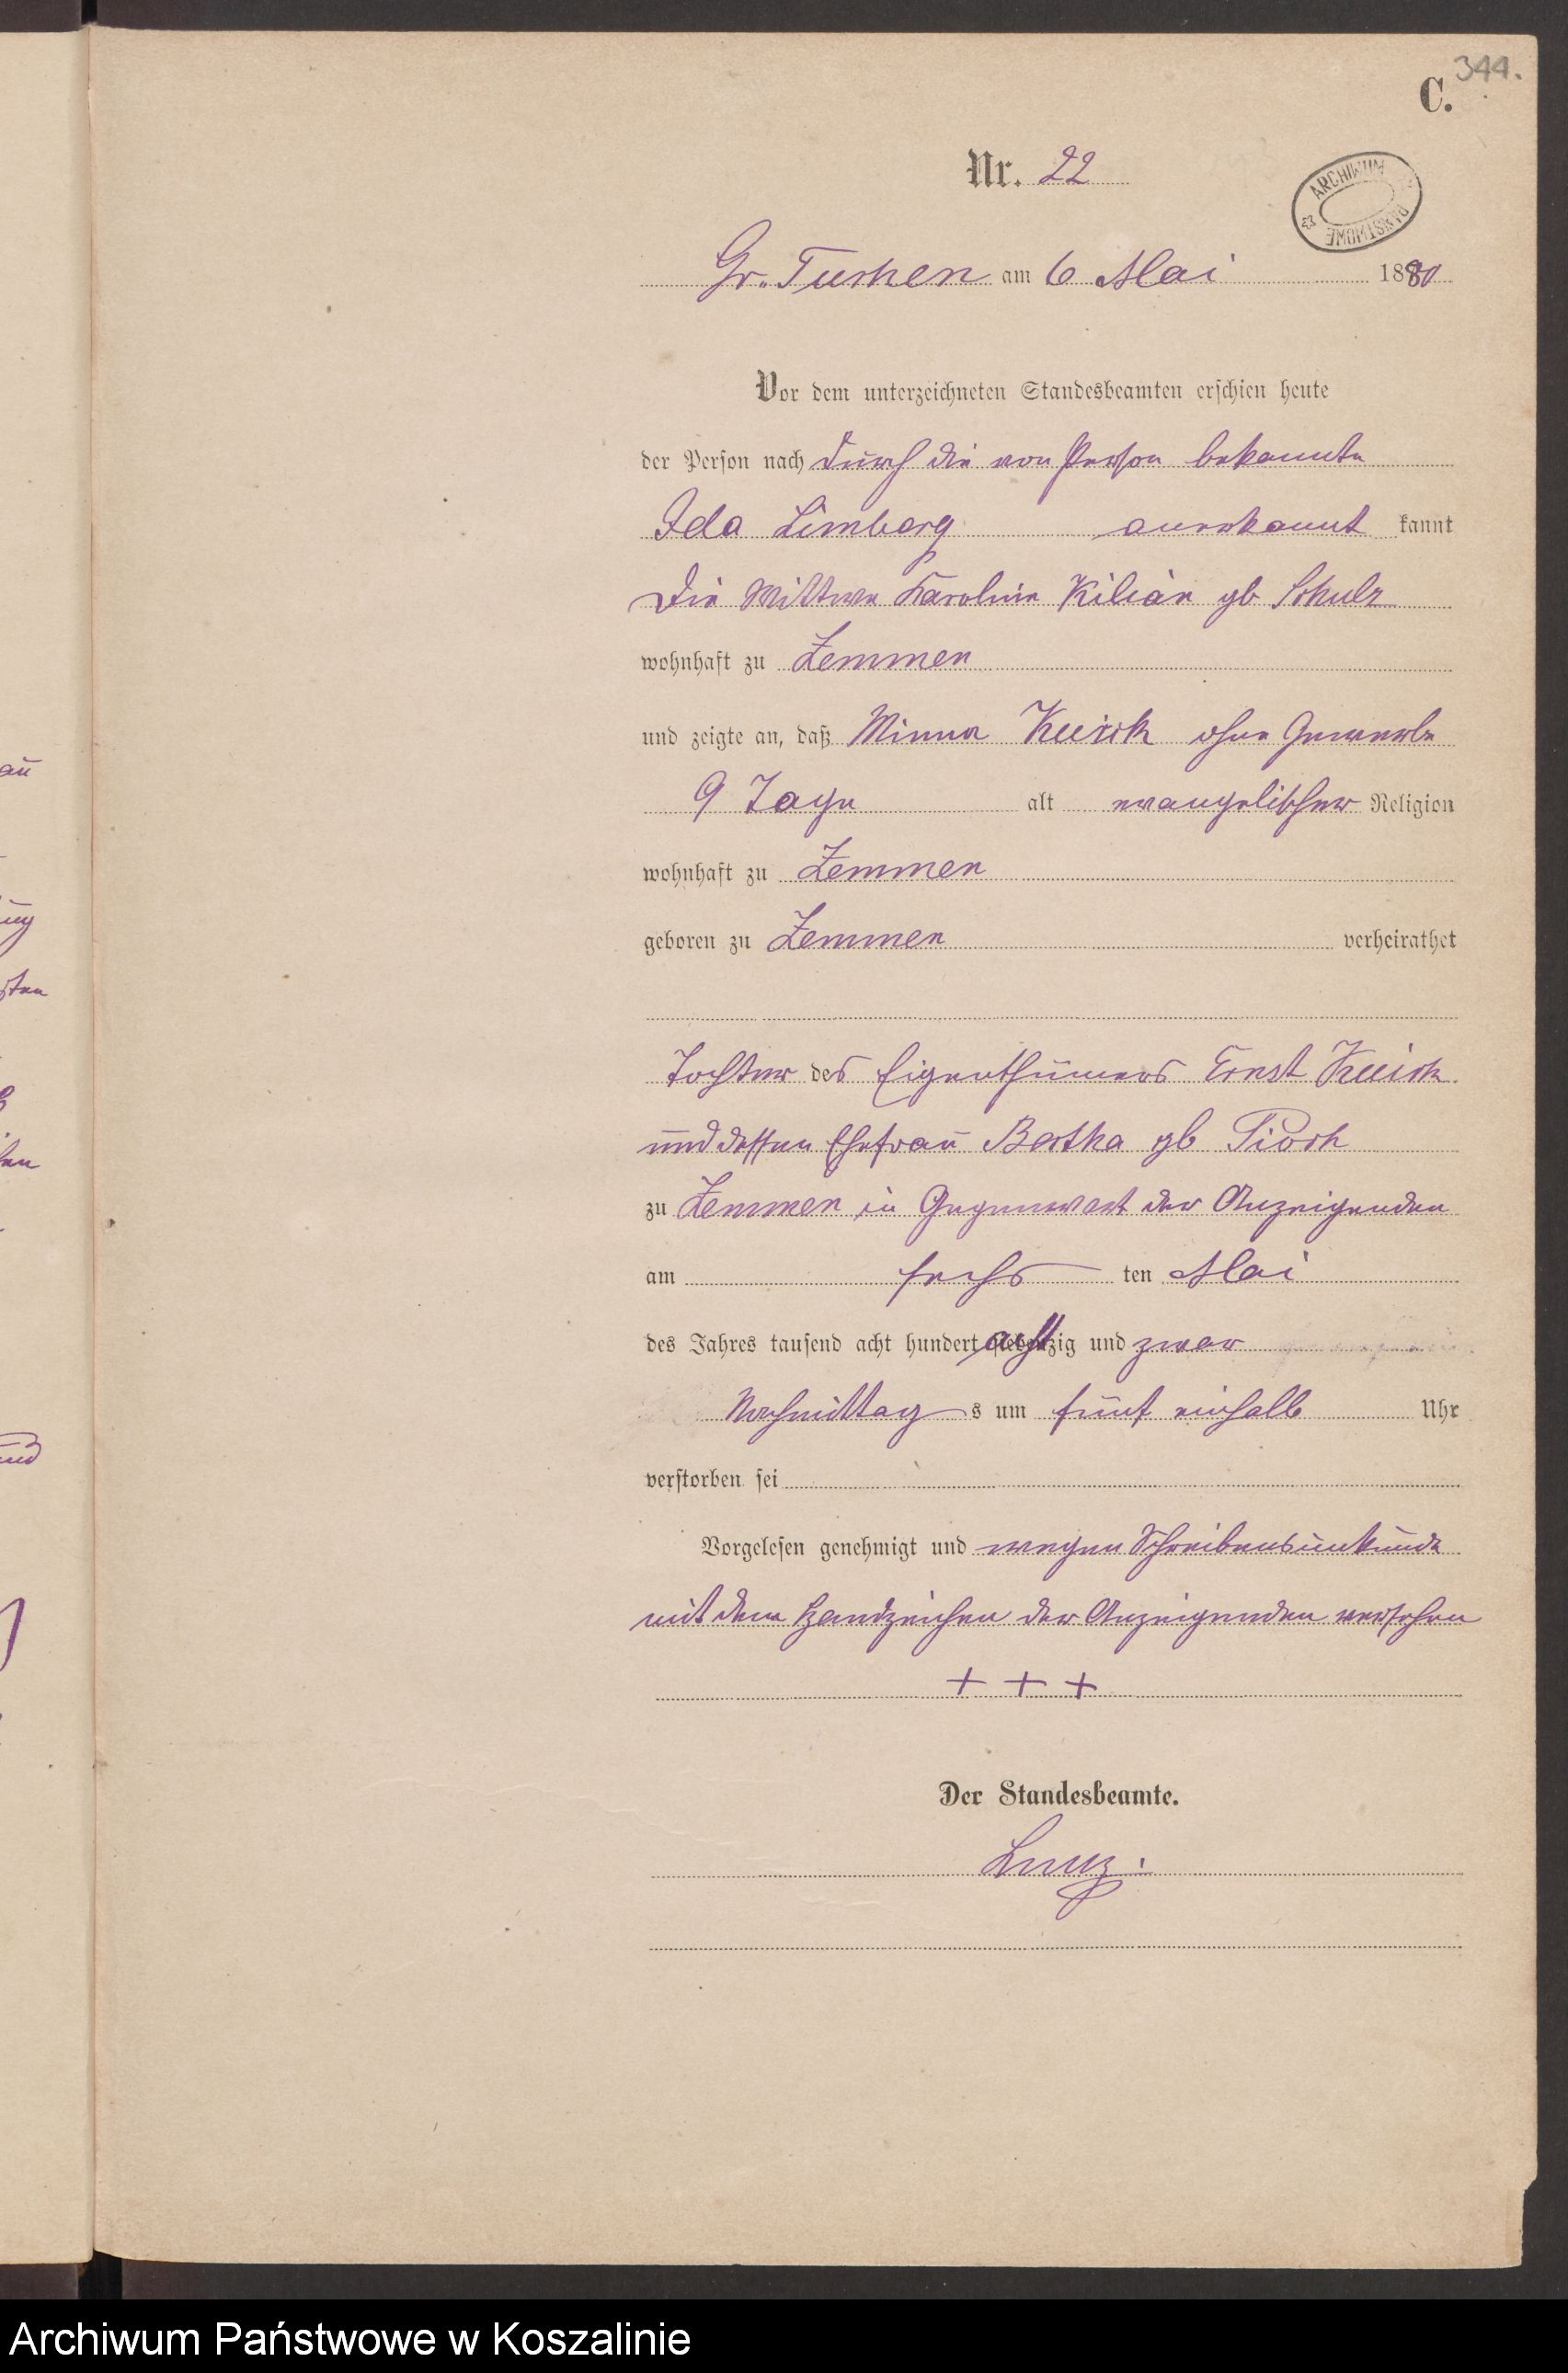 344.
C.
Nr. 22
ARCHIWUM PAŃSTWOWE
Gr. Tuchen am 6 Mai 1880
Vor dem unterzeichneten Standesbeamten erschien heute
der Person nach durch die von Person bekannte
Ida Limberg anerkannt kannt
Die Wittwe Karoline Kilian gb Schulz
wohnhaft zu Zemmen
und zeigte an, daß Minna ohne Gewerbe
9 Tage alt evangelischer Religion
wohnhaft zu Zemmen
geboren zu Zemmen verheirathet
Tochter des Eigenthümers Ernst
und dessen Ehefrau Bertha gb
zu Zemmen in Gegenwart der Anzeigenden
am sechs ten Mai
des Jahres tausend acht hundert achtzig und zwar
Nachmittag s um fünf einhalb Uhr
verstorben sei
Vorgelesen genehmigt und wegen Schreibensunkunde
mit dem Handzeichen der Anzeigenden versehen
+ + +
Der Standesbeamte.
Archiwum Państwowe w Koszalinie